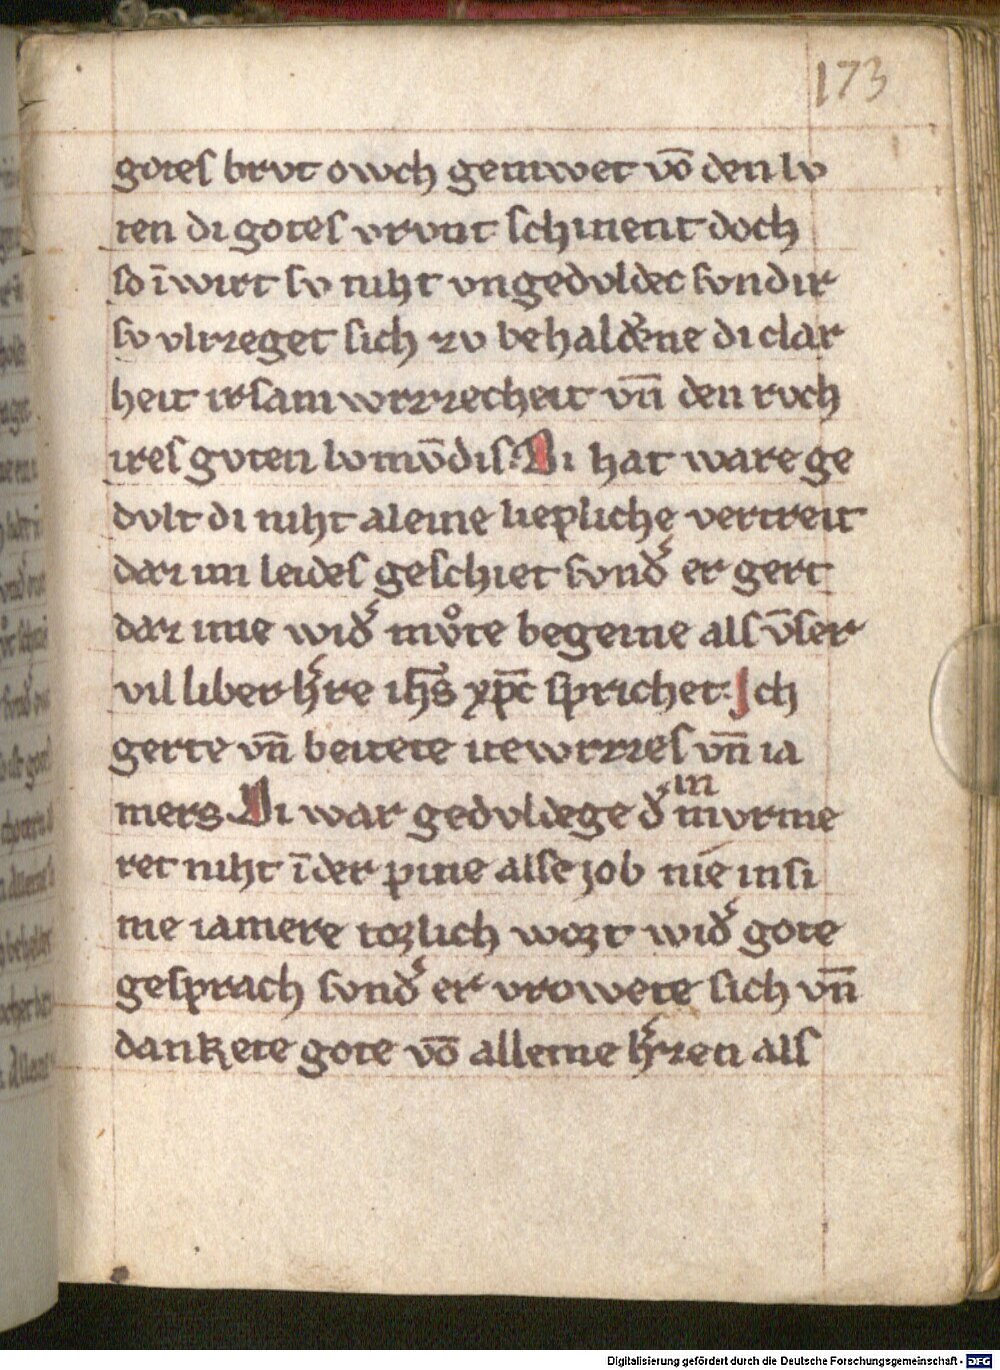 173
gotes brvt owch gemwet vō den lv
ten di gotes vrvnt schinent doch
so īwirt sv niht vngedvldec svndir
sv vlizzeget sich zv behaldene di clar
heit irsamwrzzecheit vn̄ den rvch
ires gvten lvmv̄dis. Di hat ware ge
dvlt di niht aleine liepliche vertreit
daz im leides geschiet svnd͛ er gert
daz ime wid͛ mvͦte begeine als v̄ser
vil liber h͛re ih̄s xp̄c sprichet. Ich
gerte vn̄ beitete itewizzes vn̄ ia
mers. Di war gedvldege d͛ in mvrme
ret niht īder pine alse job nie insi
me iamere tozlich wozt wid͛ gote
gesprach svnd͛ er vrowete sich vn̄
dankete gote vō alleme h͛zen als
Digitalisierung gefördert durch die Deutsche Forschungsgemeinschaft - DFG